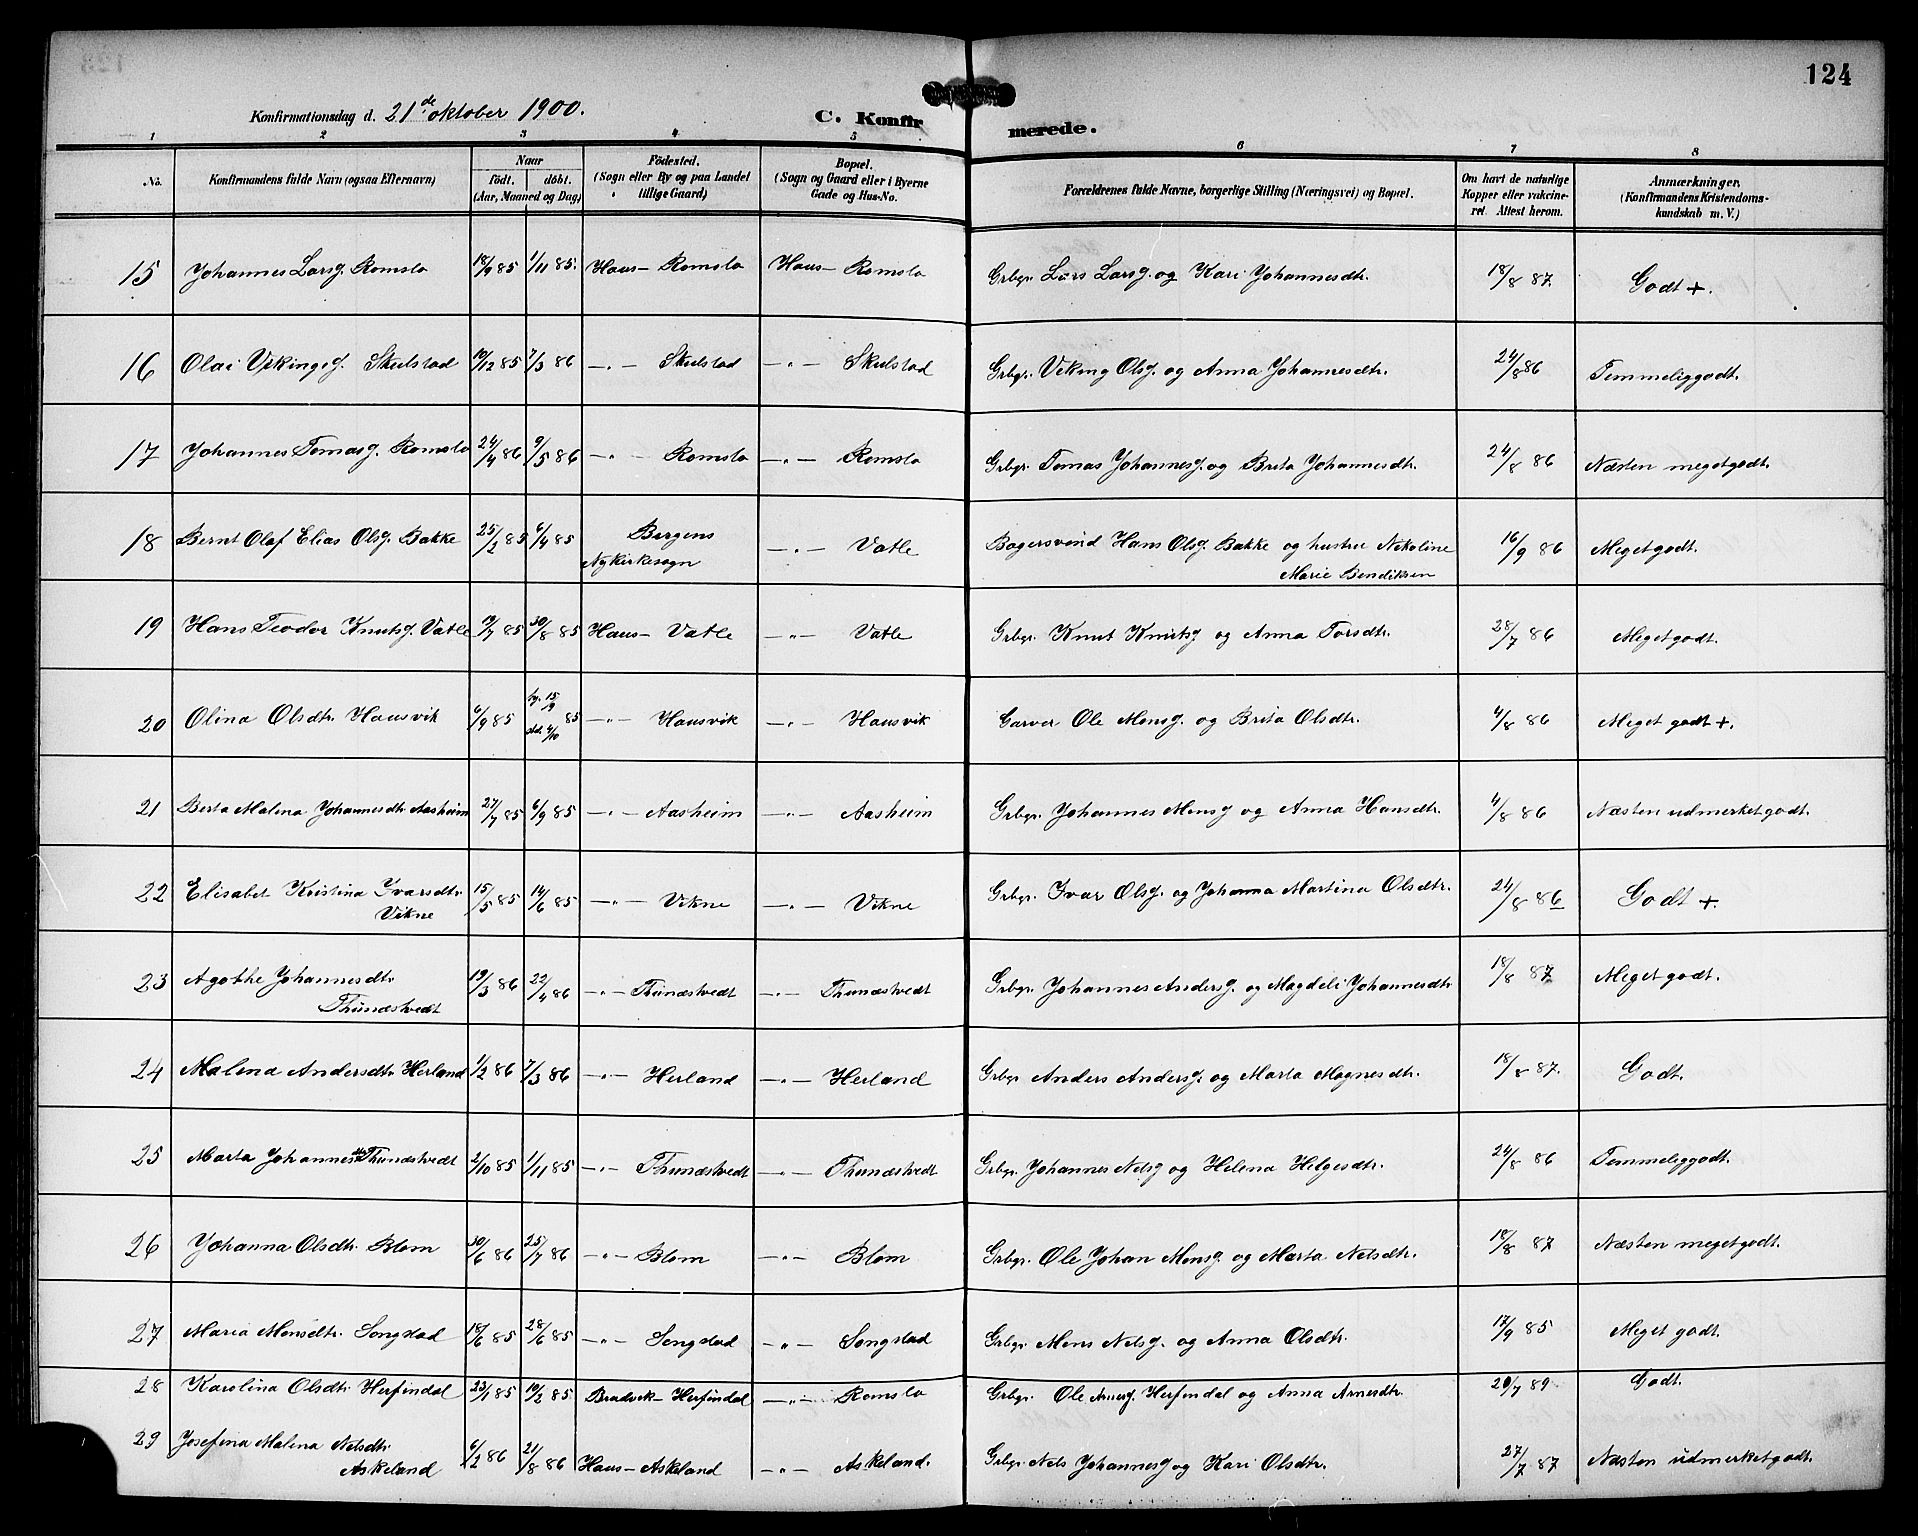 124
Konfirmationsdag d. 21de oktober 1900.
C. Konfirmerede.
1 2 3 4 5 6 7 8
No. Konfirmandens fulde Navn (ogsaa Efternavn) Naar födt. döbt. (Aar, Maaned og Dag) Födested. (Sogn eller By og paa Landet tillige Gaard) Bopæl. (Sogn og Gaard eller i Byerne Gade og Hus-No. Forældrenes fulde Navne, borgerlige Stilling (Næringsvei) og Bopæl. Om havt de naturlige Kopper eller vakcineret. Attest herom. Anmærkninger. (Konfirmandens Kristendomskundskab m. V.)
15 Johannes Larsg. Romslo 18/9 85 1/11 85. Haus - Romslo Haus - Romslo Grbgr. Lars Larsg. og Kari Johannesdtr. 18/8 87. Godt +.
16 Olai Vikingsg. Skulstad 19/12 85 7/3 86 -„- Skulstad -„- Skulstad Grbgr. Viking Olsg. og Anna Johannesdtr. 24/8 86 Temmeliggodt.
17 Johannes Tomasg. Romslo 24/4 86 9/5 86 -„- Romslo -„- Romslo Grbgr. Tomas Johannesg. og Brita Johannesdtr. 24/8 86 Næsten megetgodt.
18 Bernt Olaf Elias Olsg. Bakke 25/2 85 6/4 85 Bergens Nykirkesogn -„- Vatle Bagersvend Hans Olsg. Bakke og hustru Nikoline Marie Bendiksen 16/9 86 Megetgodt.
19 Hans Teodor Knutsg. Vatle 19/7 85 30/8 85 Haus - Vatle -„- Vatle Grbgr. Knut Knutsg og Anna Torsdtr. 28/7 86 Megetgodt.
20 Olina Olsdtr. Hausvik 6/9 85 15/9 85 4/10 -„- Hausvik -„- Hausvik Garver Ole Monsg. og Brita Olsdtr. 4/8 86 Meget godt +.
21 Berta Malena Johannesdtr. Aasheim 27/7 85 6/9 85 -„- Aasheim -„- Aasheim Grbgr. Johannes Monsg og Anna Hansdtr. 4/8 86 Næsten udmerketgodt.
22 Elisabet Kristina Ivarsdtr. Vikne 15/5 85 14/6 85 -„- Vikne -„- Vikne Grbgr. Ivar Olsg. og Johanna Martina Olsdtr. 24/8 86 Godt +.
23 Agothe Johannesdtr. Thunæstvedt 19/3 86 22/4 86 -„- Thunæstvedt -„- Thunæstvedt Grbgr. Johannes Andersg. og Magdeli Johannesdtr. 18/8 87 Megetgodt.
24 Malena Andersdtr. Herland 1/2 86 7/3 86 -„- Herland -„- Herland Grbgr. Anders Andersg. og Marta Magnesdtr. 18/8 87. Godt.
25 Marta Johannesdtr. Thunæstvedt 2/10 85 1/11 85 -„- Thunæstvedt -„- Thunæstvedt Grbgr. Johannes Nelsg og Helena Helgesdtr. 24/8 86 Temmeliggodt.
26 Johanna Olsdtr. Blom 30/6 86 25/7 86 -„- Blom -„- Blom Grbgr. Ole Johan Monsg. og Marta Nelsdtr. 18/8 87 Næsten megetgodt.
27 Maria Monsdtr. Songstad 18/6 85 28/6 85 -„- Songstad -„- Songstad Grbgr. Mons Nelsg. og Anna Olsdtr. 17/9 85 Meget godt.
28 Karolina Olsdtr. Herfindal 23/1 85 19/2 85 Bradvik - Herfindal -„- Romslo Grbgr. Ole Arnesg. Herfindal og Anna Arnesdtr. 20/7 89 Godt.
29 Josefina Malena Nelsdtr. Askeland 6/2 86 21/8 86 Haus - Askeland -„- Askeland. Grbgr. Nels Johannesg og Kari Olsdtr. 27/7 87 Næsten udmerketgodt.